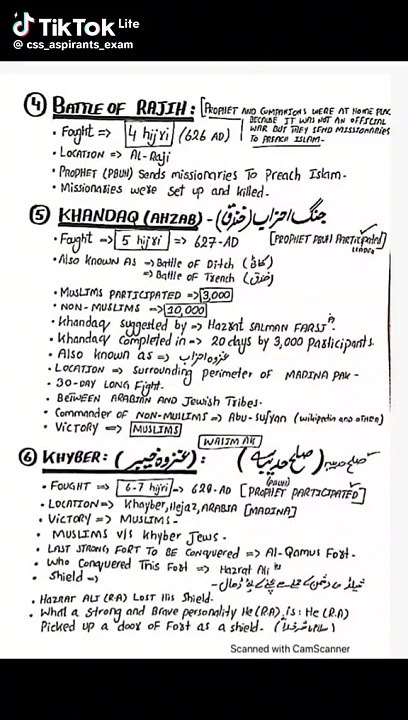 TikTok Lite
@ css_aspirants_exam
④ BATTLE OF RAJIH: [PROPHET AND COMPANIONS WERE AT HOME
BECAUSE IT WAS NOT AN OFFICIAL
WAR BUT THEY SEND MISSIONARIES
TO PREACH ISLAM.
• Fought => 4 hijri (626 AD)
• LOCATION => Al-Raji
• PROPHET (PBUH) Sends missionaries To Preach Islam.
• Missionaries were set up and killed.
⑤ KHANDAQ (AHZAB) - (خندق) جنگ احزاب
• Fought => 5 hijri => 627-AD [PROPHET PBUH PARTICIPATED]
• Also Known AS => Battle OF Ditch
=> Battle OF Trench (خندق)
• MUSLIMS PARTICIPATED => 3,000
• NON-MUSLIMS => 10,000
• Khandaq suggested by => Hazrat SALMAN FARSI
• Khandaq Completed in => 20 days by 3,000 Participants.
• Also known as => غزوہ احزاب
• LOCATION => Surrounding perimeter OF MADINA PAK-
• 30-DAY LONG Fight.
• BETWEEN ARABIAN AND Jewish Tribes.
• Commander OF NON-MUSLIMS => Abu-Sufyan (wikipedia and others)
• VICTORY => MUSLIMS
⑥ KHYBER: (غزوہ خیبر): (صلح حدیبیہ)
• FOUGHT => 6-7 hijri => 628-AD [PROPHET (PBUH) PARTICIPATED]
• LOCATION => Khayber, Hejaz, ARABIA [MADINA]
• VICTORY => MUSLIMS-
• MUSLIMS V/S Khyber Jews-
• LAST STRONG FORT TO BE CONQUERED => Al-Qamus Fort.
• Who Conquered This Fort => Hazrat Ali
• Shield =>
• HAZRAT ALI (R.A) LOST His Shield.
• What a Strong and Brave personality He (R.A) is: He (R.A)
Picked up a door of Fort as a shield-
Scanned with CamScanner